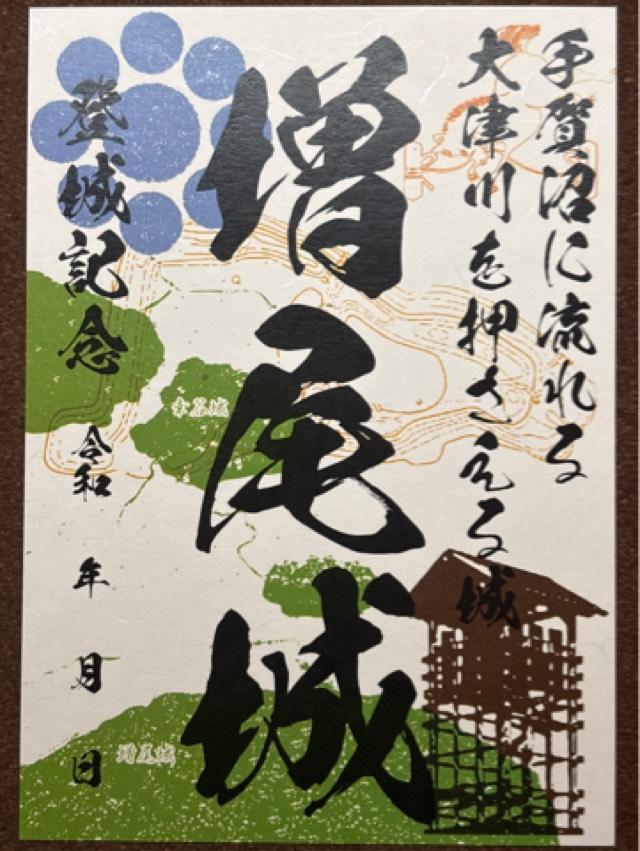 手賀沼に流れる
大津川を押さえる城
増尾城
登城記念
令和 年 月 日
幸谷城
増尾城